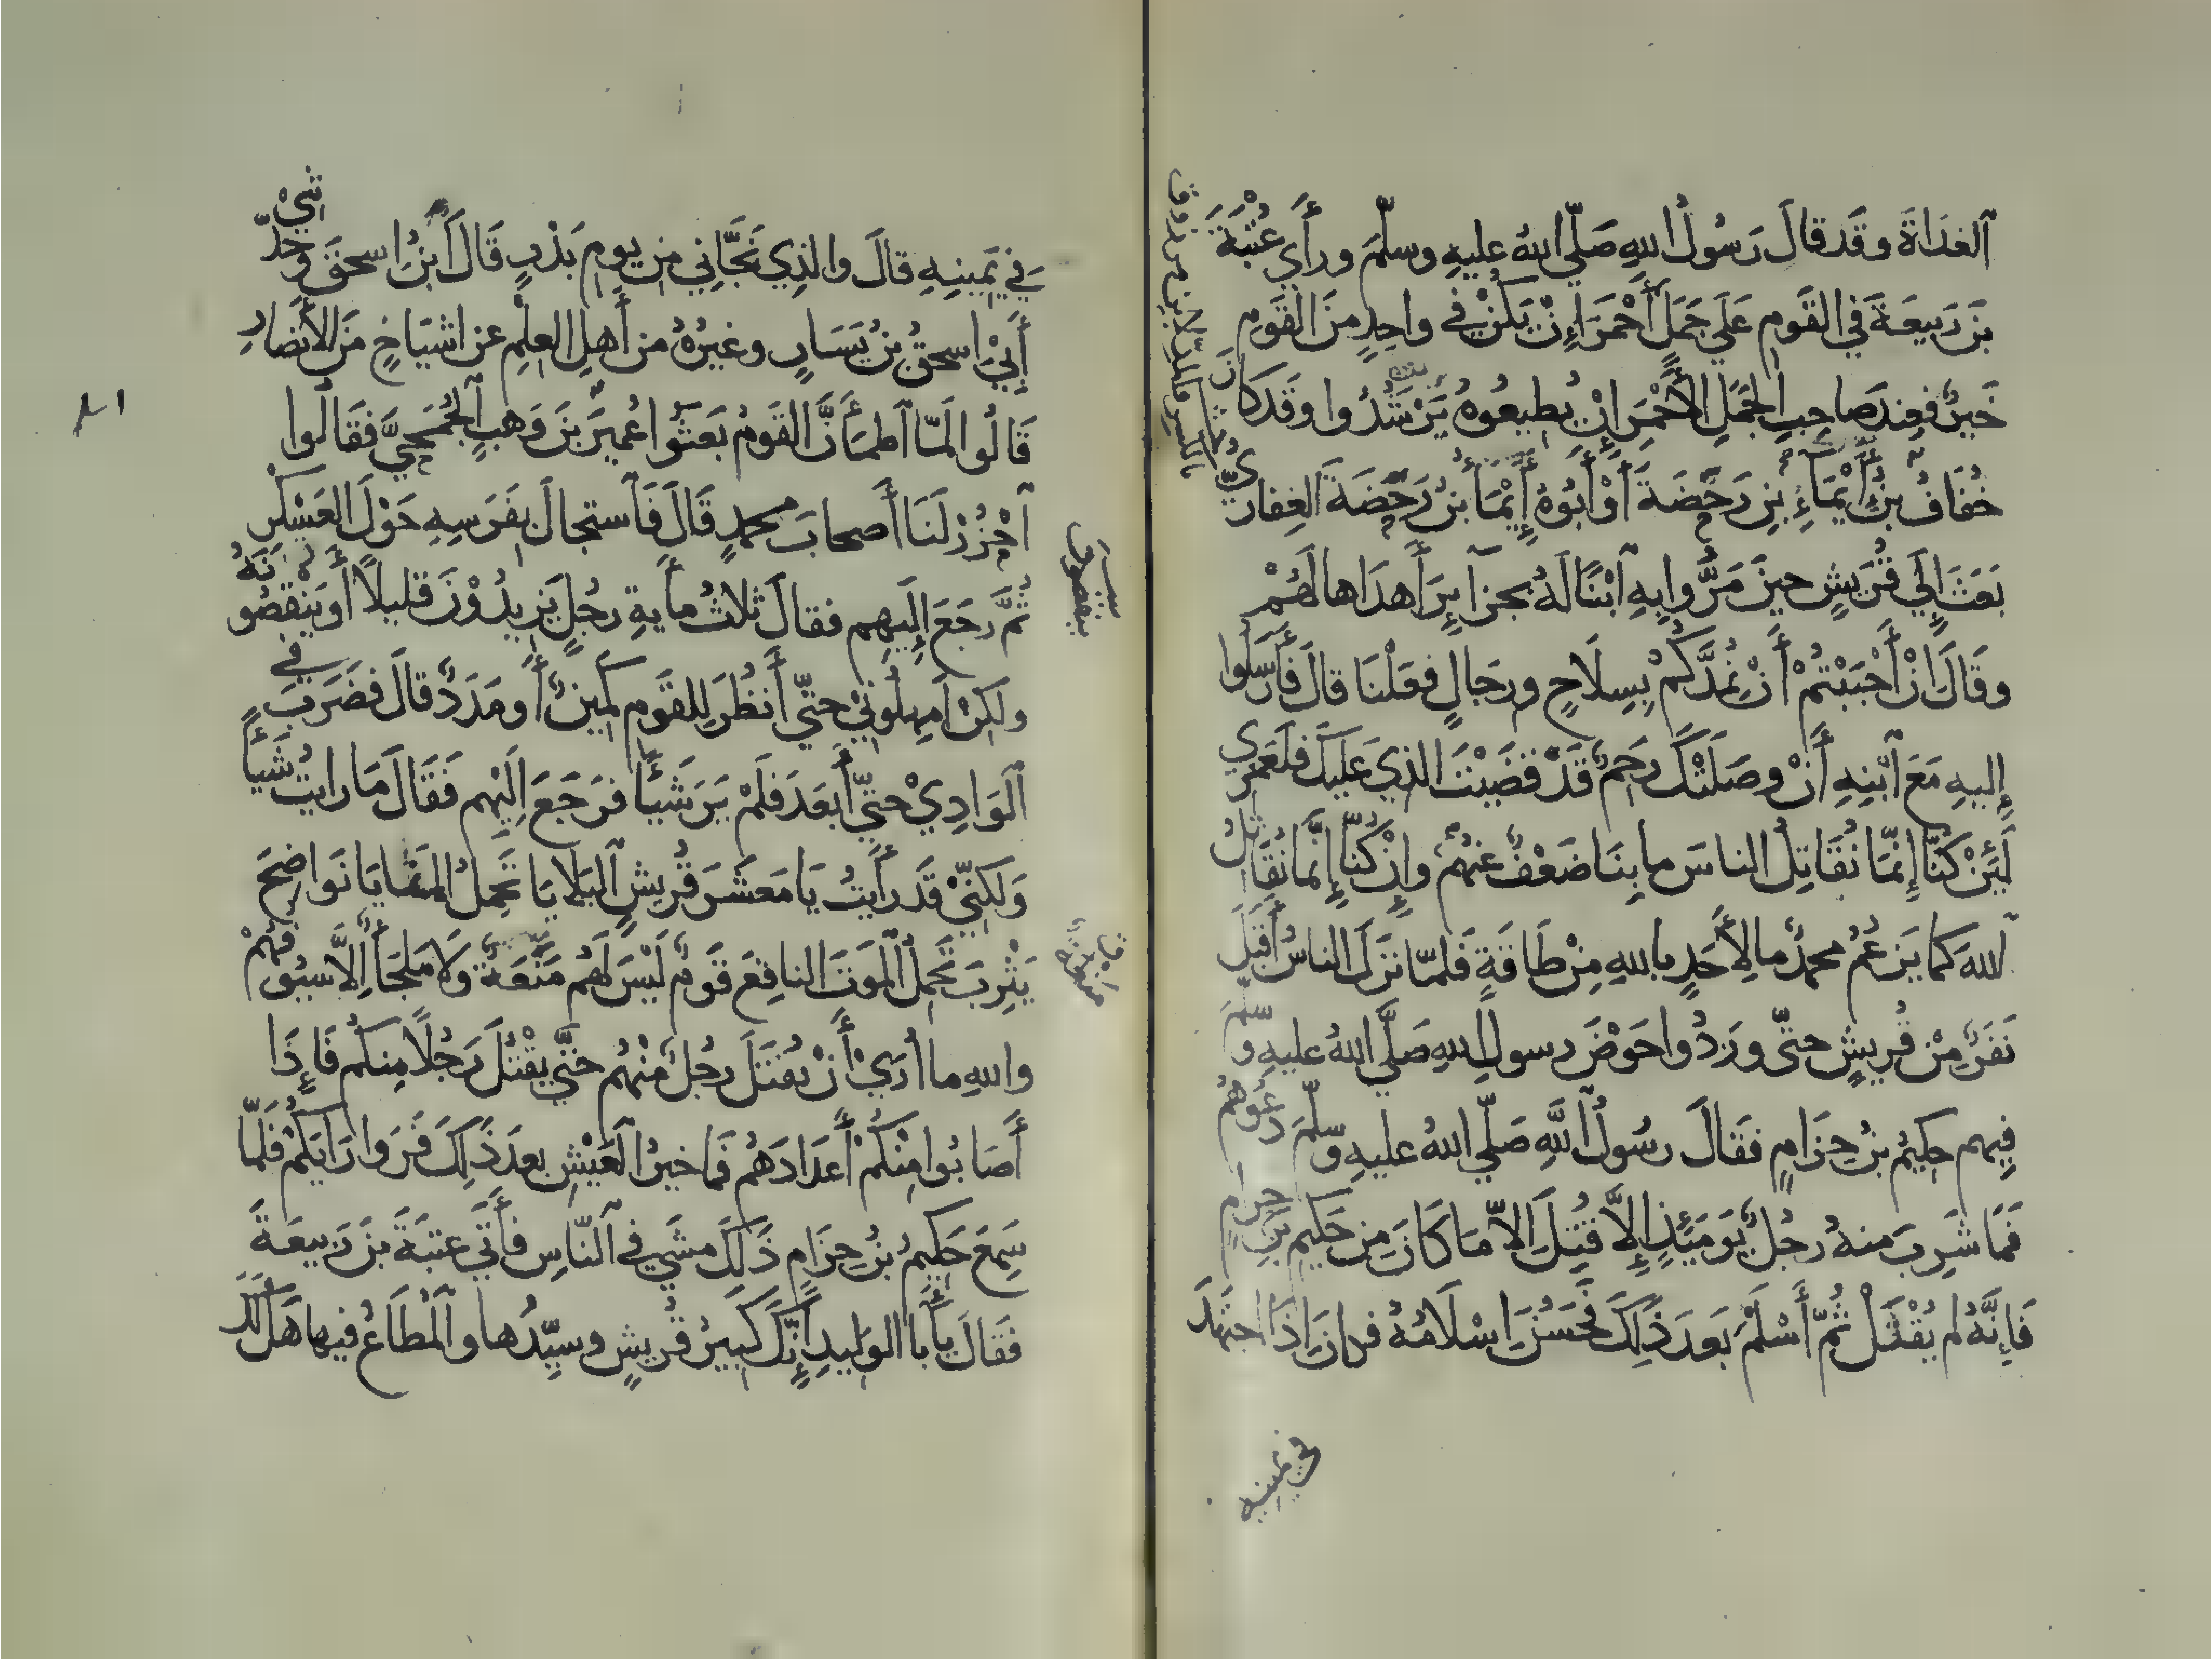 ٱلغدَاةَ وقَد قالَ رَسُولُ اللهِ صَلّي اللهُ عليهِ وسلّمَ ورأَي عُتْبَةَ
بنَ رَبيعَةَ في القَومِ عَلَي جَمَلٍ أَحْمَرَ إِنْ يَكُنْ في واحِدٍ منَ القَومِ
خَيرٌ فعِندَ صاحِبِ الجَمَلِ الأَحْمَرِ إِنْ يُطيعُوهُ يَرْشُدُوا وقَد كانَ
خُفَافُ بنُ أَيْمَآءِ بنِ رَحَضَةَ أَوْ أَبُوهُ إِيْمَآءُ بنُ رَحَضَةَ الغِفارِيُّ
بَعَثَ إِلَي قُرَيشٍ حينَ مَرُّوا بِهِ ٱبْنًا لَهُ بجزآئِرَ أَهدَاها لَهُمْ
وقَالَ إنْ أَحْبَبْتُمْ أَنْ نُمِدَّكُمْ بِسِلَاحٍ ورجَالٍ فعَلْنَا قالَ فأَرسَلُوا
إِليهِ مَعَ ٱبْنِهِ أَنْ وصَلَتْكَ رَحِمٌ قَدْ قضَيْتَ الذي عَليكَ فلَعَمْرِي
لَئِنْ كنَّا إِنَّمَا نُقَاتِلُ الناسَ ما بِنَا ضَعْفٌ عنهُمْ وإِنْ كُنَّا إِنَّمَا نُقَاتِلُ
اللهَ كما يَزعُمُ محمدٌ ما لأَحَدٍ باللهِ مِنْ طَاقَةٍ فَلمّا نزَلَ الناسُ أَقبَلَ
نَفَرٌ مِنْ قُريشٍ حتّى ورَدُوا حَوْضَ رسولِ اللهِ صَلَّي اللهُ عليهِ وسلّمَ
فِيهم حكيمُ بنُ حِزَامٍ فقَالَ رسُولُ ٱللَّهِ صَلّي اللهُ عليهِ وسلّمَ دعُوهُمْ
فمَا شَرِبَ منهُ رجُلٌ يَومَئِذٍ إِلاَّ قُتِلَ إلاّ مَا كَانَ مِن حَكيمِ بنِ حِزَامٍ
فَإِنَّهُ لم يُقْتَلْ ثُمّ أَسْلَمَ بَعدَ ذَلِكَ فحَسُنَ إسْلَامُهُ فكانَ إذَا اجتهَدَ
في يمينه
في يَمينِهِ قالَ والذِي نَجَّانِي مِن يومِ بَدْرٍ قَالَ ٱبنُ إسحقَ وحَدَّثَنِيْ
أَبِيْ إسحقُ بنُ يَسَارٍ وغيرُهُ من أَهلِ العِلْمِ عن اشيَاخٍ مِنَ الأَنصَارِ
قَالُوا لَمّا ٱطمَأَنَّ القَومُ بَعَثُوا عُميرَ بنَ وَهبٍ ٱلجُمَحِيَّ فقَالُوا
ٱحْزُرْ لَنَا أَصحابَ محمدٍ قَالَ فَٱستجالَ بفَرَسِهِ حَوْلَ العَسْكَرِ
ثُمَّ رجَعَ إِلَيهِم فقالَ ثلاثُ مأيةِ رجُلٍ يَزِيدُوْنَ قليلًا أَو يَنْقُصُونَهُ
ولكنْ أَمهِلُونِيْ حتّي أَنظُرَ لِلقَومِ كَمِينٌ أَو مَدَدٌ قالَ فضَرَبَ في
ٱلوَادِيْ حتّي أَبعَدَ فَلَمْ يَرَ شَيْئًا فرَجَعَ إِلَيْهِم فَقَالَ مَا رايتُ شَيئًا
وَلكِنِّيْ قَد رأَيتُ يَا مَعشَرَ قُريشٍ ٱلبَلَايَا تَحْمِلُ المنَايَا نَواضِحَ
يَثْرِبَ تَحْمِلُ ٱلمَوتَ الناقِعَ قَومٌ لَيْسَ لَهُم مَنَعَةٌ وَلا مَلجَأٌ إلّا سُيُوفُهُمْ
واللهِ ما أرَيْ أَنْ يُقتَلَ رجُلٌ منْهُم حتَّي يَقْتُلَ رَجُلًا مِنكم فَإِذَا
أَصَابُوا مِنْكُمْ أَعدَادَهُم فمَا خيرُ العَيْشِ بعدَ ذَلِكَ فرَوا رَايَكُمْ فَلَمَّا
سَمِعَ حَكِيمُ بنُ حِزَامٍ ذَلكَ مشَي في ٱلنّاسِ فأَتَي عتبَةَ بنَ رَبيعَةَ
فَقَالَ يأَبا الوَليدِ إِنَّكَ كبيرُ قُريشٍ وسيِّدُها وٱلمُطَاعُ فيها هَل لَكَ